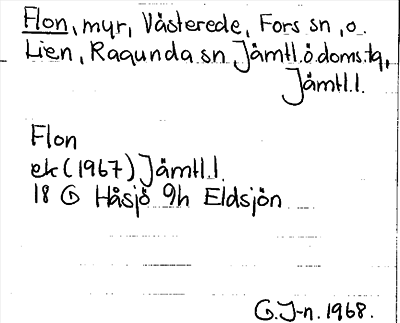 Flon, myr, Västerede, Fors sn, o.
Lien, Ragunda sn Jämtl.ö.doms.tg,
Jämtl.l.
Flon
ek (1967) Jämtl.l.
18 G Håsjö 9h Eldsjön
G.J-n. 1968.